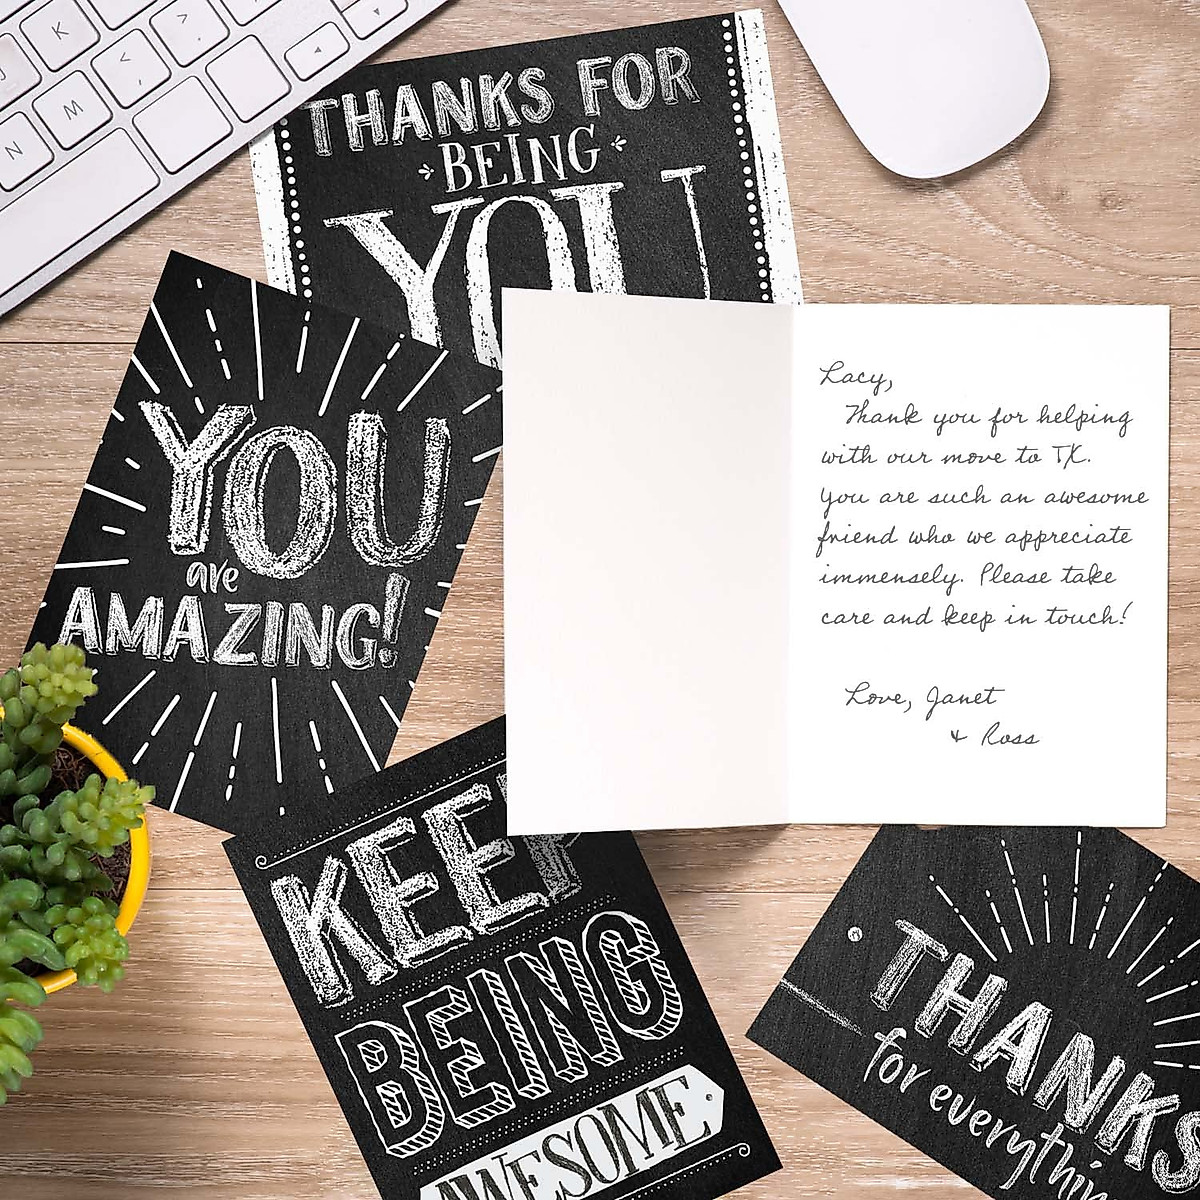 K
M
N
<
,
>
.
THANKS FOR
BEING
YOU
YOU
are
AMAZING!
Lacy,
Thank you for helping
with our move to TX.
You are such an awesome
friend who we appreciate
immensely. Please take
care and keep in touch!
Love, Janet
& Ross
KEEP
BEING
AWESOME
THANKS
for everything